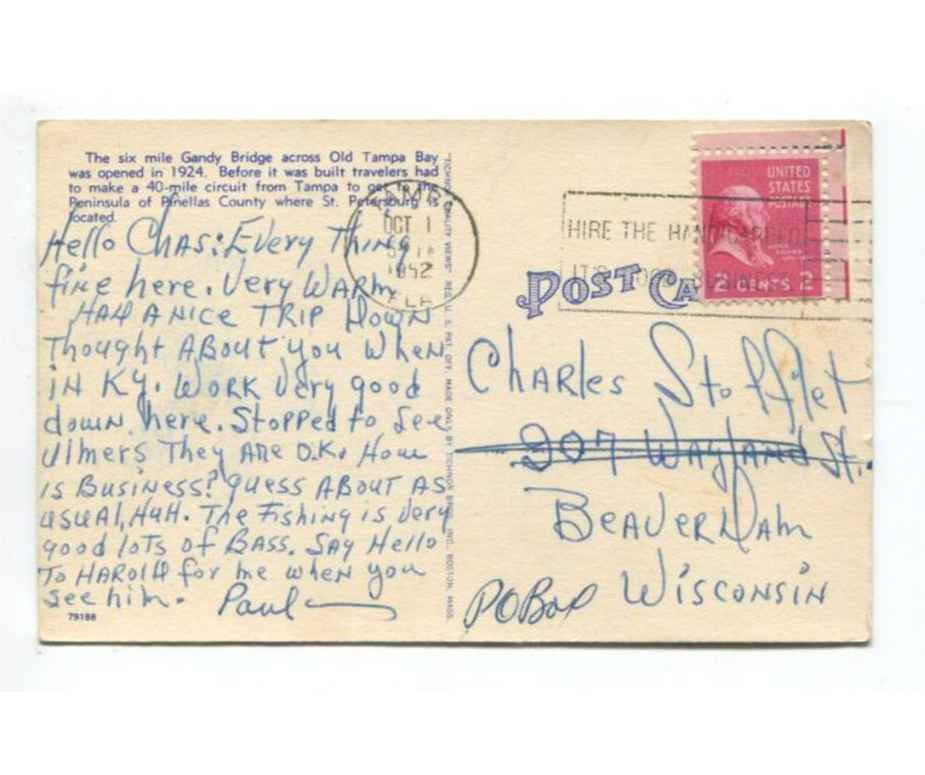 The six mile Gandy Bridge across Old Tampa Bay
was opened in 1924. Before it was built travelers had
to make a 40-mile circuit from Tampa to get to the
Peninsula of Pinellas County where St. Petersburg is
located.
Hello CHAS: EVERY THING
fine here. Very WARM
HAD A NICE TRIP DOWN
Thought ABOUT you when
in KY. WORK Very good
down here. Stopped to see
They ARE O.K. How
is BUSINESS? guess ABOUT AS
usual, Huh. The Fishing is Very
good lots of BASS. SAY Hello
To HAROLD for me when you
see him. Paul
79188
"TICHNOR QUALITY VIEWS" REG. U. S. PAT. OFF. MADE ONLY BY TICHNOR BROS. INC., BOSTON, MASS.
OCT 1
1952
FLA
HIRE THE HANDICAPPED
IT'S GOOD BUSINESS
UNITED
STATES
POSTAGE
2 CENTS 2
POST CA
CHARLES Stofflet
207 Wayland St.
BEAVER DAM
WISCONSIN
PO Box